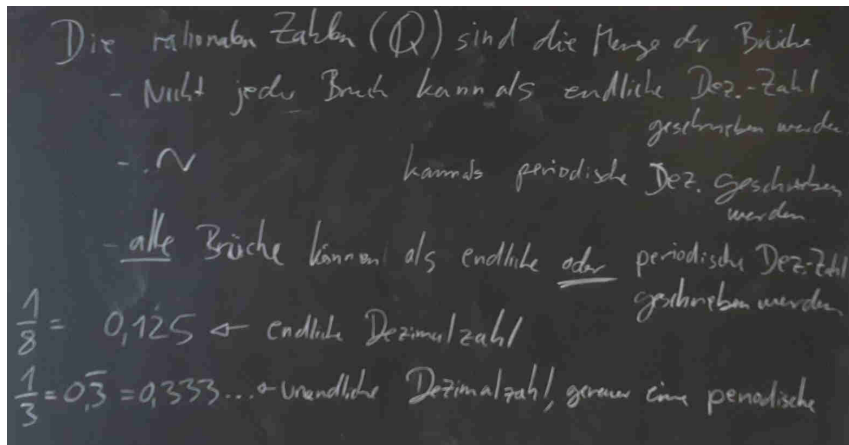 Die rationalen Zahlen (ℚ) sind die Menge der Brüche
- Nicht jeder Bruch kann als endliche Dez.-Zahl
geschrieben werden
- . ~ kann als periodische Dez. geschrieben
werden
- alle Brüche können als endliche oder periodische Dez.-Zahl
geschrieben werden
1/8 = 0,125 ← endliche Dezimalzahl
1/3 = 0,3̅ = 0,333... ← unendliche Dezimalzahl, genauer eine periodische